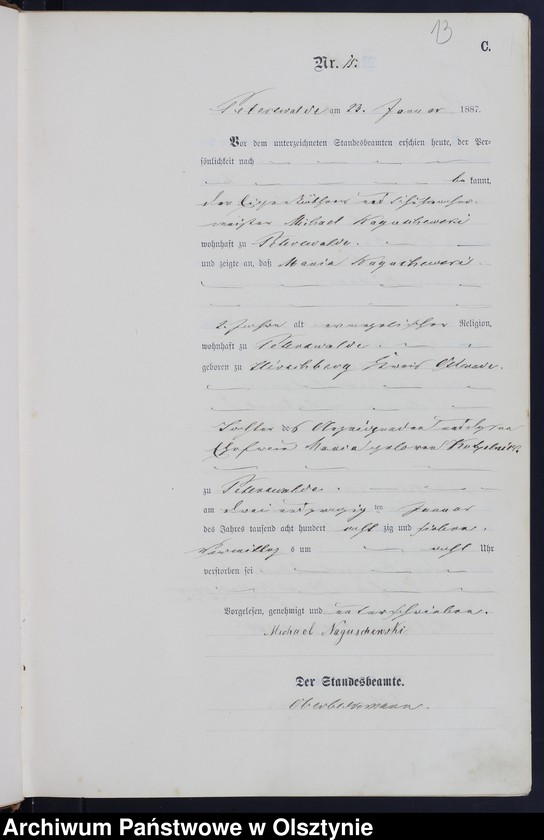 13
C.
Nr. 15.
Peterswalde am 23. Januar 1887.
Vor dem unterzeichneten Standesbeamten erschien heute, der Per-
sönlichkeit nach
be kannt,
der Eigenkäthner und
meister Michael Naguschewski
wohnhaft zu Peterswalde.
und zeigte an, daß Maria Naguschewski
Jahre alt evangelischer Religion,
wohnhaft zu Peterswalde.
geboren zu Hirschberg Kreis Osterode.
Tochter des Anzeigenden und dessen
Ehefrau Maria geborene
zu Peterswalde
am drei und zwanzig ten Januar
des Jahres tausend acht hundert acht zig und sieben.
Vormittag s um acht Uhr
verstorben sei
Vorgelesen, genehmigt und unterschrieben.
Michael Naguschewski
Der Standesbeamte.
Archiwum Państwowe w Olsztynie